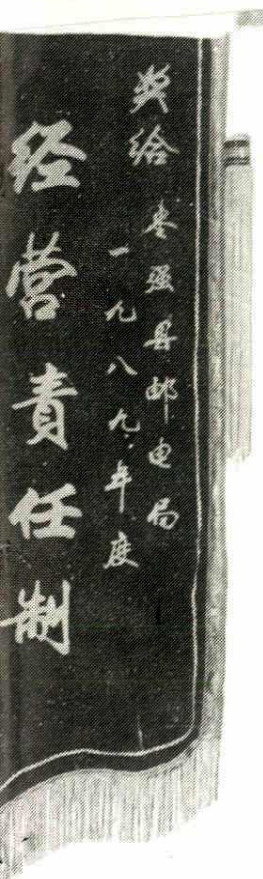 奖给枣强县邮电局
一九八九年度
经营責任制